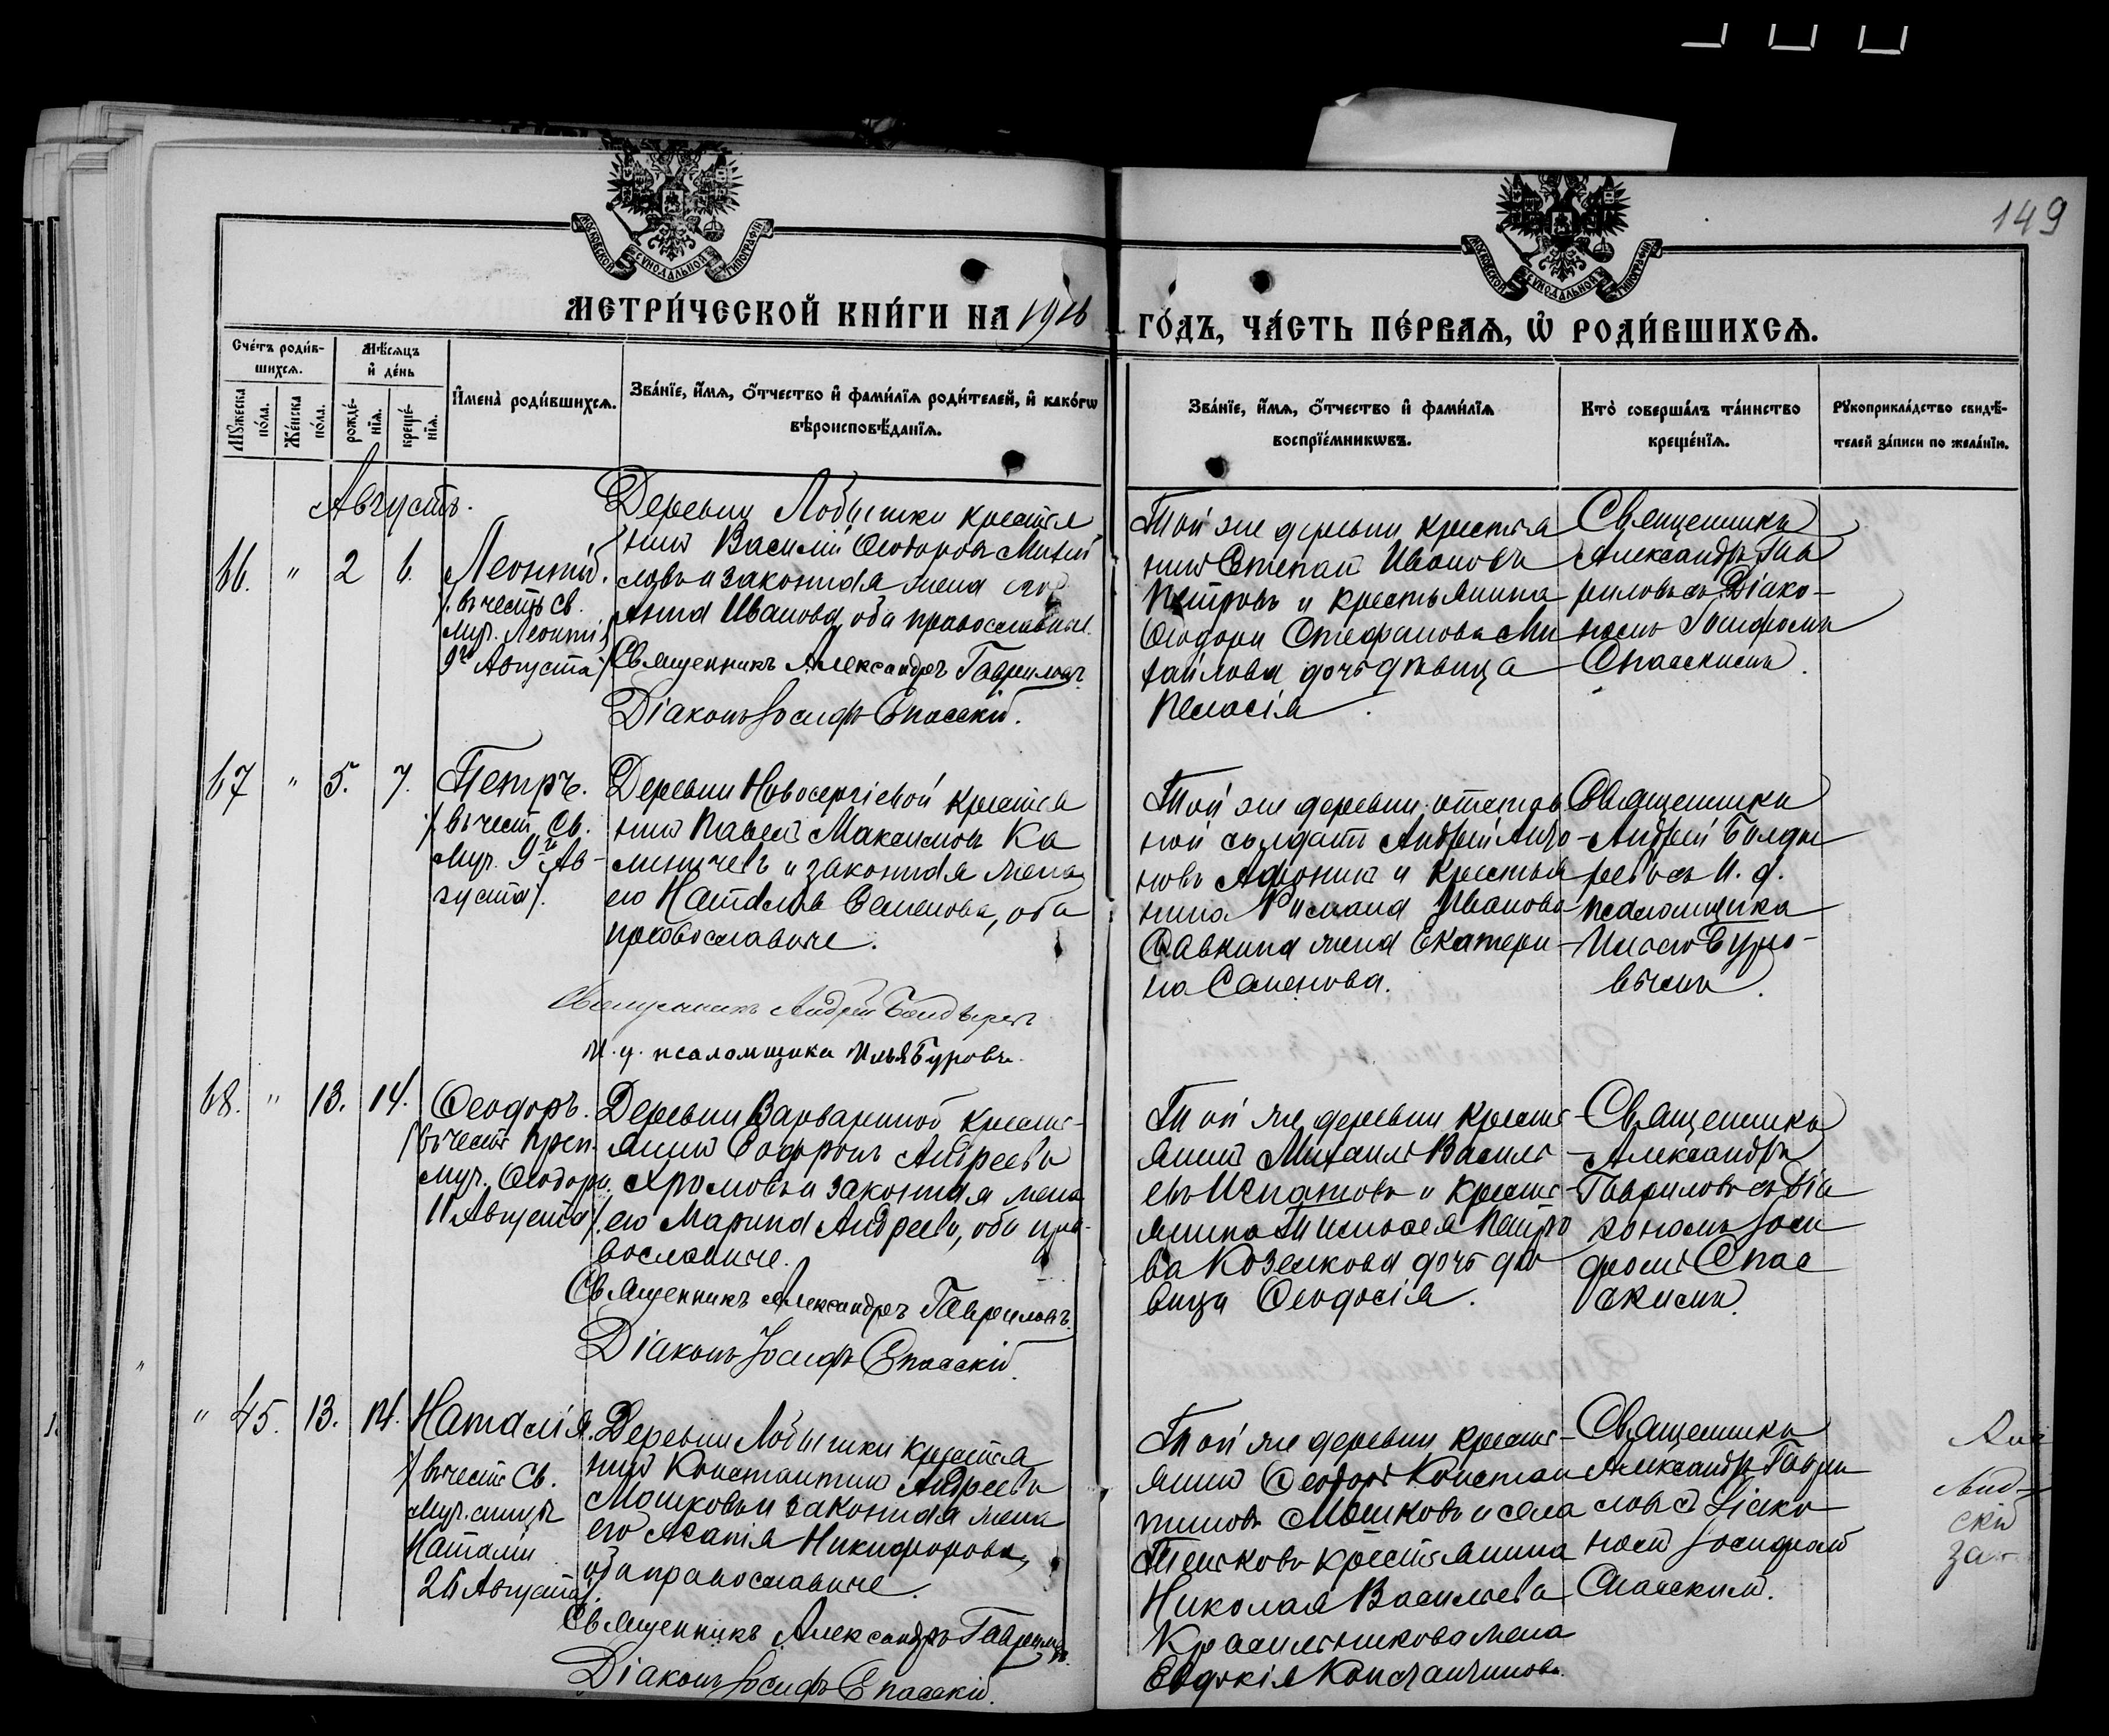 149
МОСКОВСКОЙ СѴНОДАЛЬНОЙ ТИПОГРАФІИ
МОСКОВСКОЙ СѴНОДАЛЬНОЙ ТИПОГРАФІИ
МЕТРИ́ЧЕСКОЙ КНИ́ГИ НА 1916
ГО́ДЪ, ЧА́СТЬ ПЕ́РВАѦ, Ѡ҆ РОДИ́ВШИХСѦ.
Сче́тъ роди́в-
шихсѧ.
Мѣ́сѧцъ
и҆ де́нь
Мꙋ́жеска
по́ла.
Же́нска
по́ла.
рожде́-
нїѧ.
креще́-
нїѧ.
И҆мена̀ роди́вшихсѧ.
Зва́нїе, и҆́мѧ, ѻ҆́тчество и҆ фами́лїѧ роди́телей, и҆ како́гѡ
вѣроисповѣ́данїѧ.
Зва́нїе, и҆́мѧ, ѻ҆́тчество и҆ фами́лїѧ
воспрїе́мникѡвъ.
Кто̀ соверша́лъ та́инство
креще́нїѧ.
Рꙋкоприкла́дство свидѣ́-
телей за́писи по жела́нїю.
Августъ.
66. " 2 6.
Леонтій.
/въ честь св.
муч. Леонтія
9го Августа/
Деревни Лобышки крестья
нинъ Василій Ѳеодоровъ Михай
ловъ и законная жена его
Анна Иванова, оба православные.
Священникъ Александръ Гавриловъ.
Діаконъ Іосифъ Спасскій.
Той же деревни крестья
нинъ Степанъ Ивановъ
Петровъ и крестьянина
Ѳеодора Стефанова Ми
хайлова дочь дѣвица
Пелагія.
Священникъ
Александръ Гав
риловъ съ Діако-
номъ Іосифомъ
Спасскимъ.
67 " 5. 7.
Петръ.
/въ честь Св.
Муч. 9го Ав-
густа/.
Деревни Новосергіевой крестья
нинъ Павелъ Максимовъ Ка
линичевъ и законная жена
его Наталія Семенова, оба
православные.
Священникъ Андрей Болдыревъ
И. д. псаломщика Илья Буровъ.
Той же деревни отстав
ной солдатъ Андрей
Афонинъ и крестья
нина Романа Иванова
Савкина жена Екатери-
на Семенова.
Священникъ
Андрей Болды
ревъ съ И. д.
псаломщика
Ильею Буро-
вымъ.
68. " 13. 14.
Ѳеодоръ.
/въ честь Преп.
муч. Ѳеодора
11 Августа/.
Деревни Варвариной кресть-
янинъ Софронъ Андреевъ
Хромовъ и законная жена
его Марина Андреева, оба пра-
вославные.
Священникъ Александръ Гавриловъ.
Діаконъ Іосифъ Спасскій.
Той же деревни кресть-
янинъ Михаилъ Василь
евъ Игнатовъ и кресть-
янина Тимофея Петро
ва Козелкова дочь дѣ
вица Ѳеодосія.
Священникъ
Александръ
Гавриловъ съ Діа
кономъ Іоси
фомъ Спас
скимъ.
" 45. 13. 14.
Наталія.
/въ честь Св.
Мученицы
Наталіи
26 Августа/.
Деревни Лобышки крестья
нинъ Константинъ Андреевъ
Мошковъ и законная жена
его Агапія Никифорова,
оба православные.
Священникъ Александръ Гавриловъ.
Діаконъ Іосифъ Спасскій.
Той же деревни кресть-
янинъ Ѳеодоръ Констан
тиновъ Мошковъ и села
крестьянина
Николая Васильева
Красильникова жена
Евдокія Константинова.
Священникъ
Александръ Гаври
ловъ съ Діако
номъ Іосифомъ
Спасскимъ.